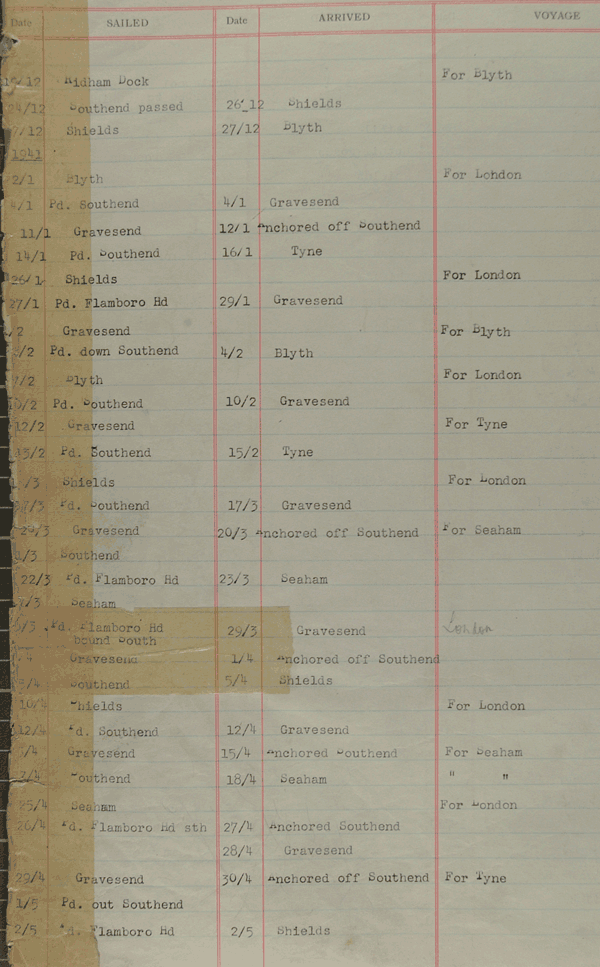 Date SAILED Date ARRIVED VOYAGE
/12 Ridham Dock For Blyth
24/12 Southend passed 26_12 Shields
7/12 Shields 27/12 Blyth
1941
2/1 Blyth For London
4/1 Pd. Southend 4/1 Gravesend
11/1 Gravesend 12/1 Anchored off Southend
14/1 Pd. Southend 16/1 Tyne
26/1 Shields For London
27/1 Pd. Flamboro Hd 29/1 Gravesend
/2 Gravesend For Blyth
/2 Pd. down Southend 4/2 Blyth
7/2 Blyth For London
10/2 Pd. Southend 10/2 Gravesend
12/2 Gravesend For Tyne
13/2 Pd. Southend 15/2 Tyne
/3 Shields For London
17/3 Pd. Southend 17/3 Gravesend
20/3 Gravesend 20/3 Anchored off Southend For Seaham
1/3 Southend
22/3 Pd. Flamboro Hd 23/3 Seaham
/3 Seaham
/3 Pd. Flamboro Hd 29/3 Gravesend London
bound South
/4 Gravesend 1/4 Anchored off Southend
3/4 Southend 5/4 Shields
10/4 Shields For London
12/4 Pd. Southend 12/4 Gravesend
/4 Gravesend 15/4 Anchored Southend For Seaham
/4 Southend 18/4 Seaham " "
25/4 Seaham For London
26/4 Pd. Flamboro Hd sth 27/4 Anchored Southend
28/4 Gravesend
29/4 Gravesend 30/4 Anchored off Southend For Tyne
1/5 Pd. out Southend
2/5 Pd. Flamboro Hd 2/5 Shields